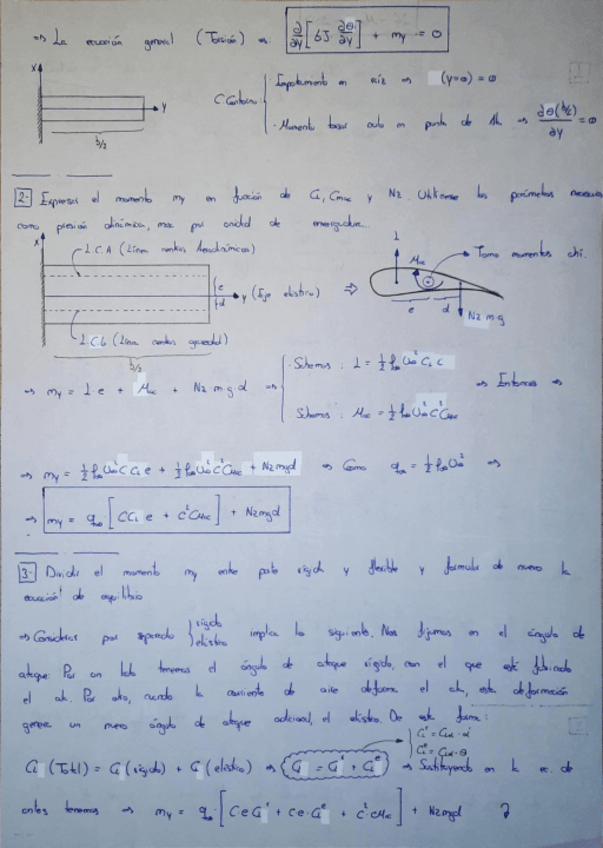 ⇒ La ecuación general (Torsión) es: ∂/∂y [GJ · ∂θ/∂y] + my = 0
x
y
b/2
C. Contorno
· Empotramiento en raíz ⇒ (y=0) = 0
· Momento torsor nulo en punta de ala ⇒ ∂θ(b/2)/∂y = 0
2- Expresar el momento my en función de Cl, Cmac y Nz. Utilícense los parámetros necesarios
como presión dinámica, masa por unidad de envergadura...
x
L.C.A (Línea centros Aerodinámicos)
e
d
y (Eje elástico)
⇒
L.C.G (Línea centros gravedad)
b/2
L
Mac
Tomo momentos ahí.
e
d
Nz m·g
⇒ my = L·e + Mac + Nz m·g·d ⇒
· Sabemos: L = ½ ρ∞ U∞² Cl c
· Sabemos: Mac = ½ ρ∞ U∞² C² Cmac
⇒ Entonces ⇒
⇒ my = ½ ρ∞ U∞² C Cl e + ½ ρ∞ U∞² C² Cmac + Nz mgd ⇒ Como q∞ = ½ ρ∞ U∞² ⇒
⇒ my = q∞ [C Cl e + C² Cmac] + Nz mgd
3- Dividir el momento my entre parte rígida y flexible y formular de nuevo la
ecuación de equilibrio
⇒ Considerar por separado } rígido elástico implica lo siguiente. Nos fijamos en el ángulo de
ataque: Por un lado tenemos el ángulo de ataque rígido, con el que está fabricado
el ala. Por otro, cuando la corriente de aire deforma el ala, esta deformación
genera un nuevo ángulo de ataque adicional, el elástico. De esta forma:
Cl^r = Clα · α^r
Cl^e = Clα · θ
Cl (Total) = Cl (rígido) + Cl (elástico) ⇒ Cl = Cl^r + Cl^e ⇒ Sustituyendo en la ec. de
antes tenemos ⇒ my = q∞ · [C e Cl^r + c e · Cl^e + c² · cMac] + Nz mgd